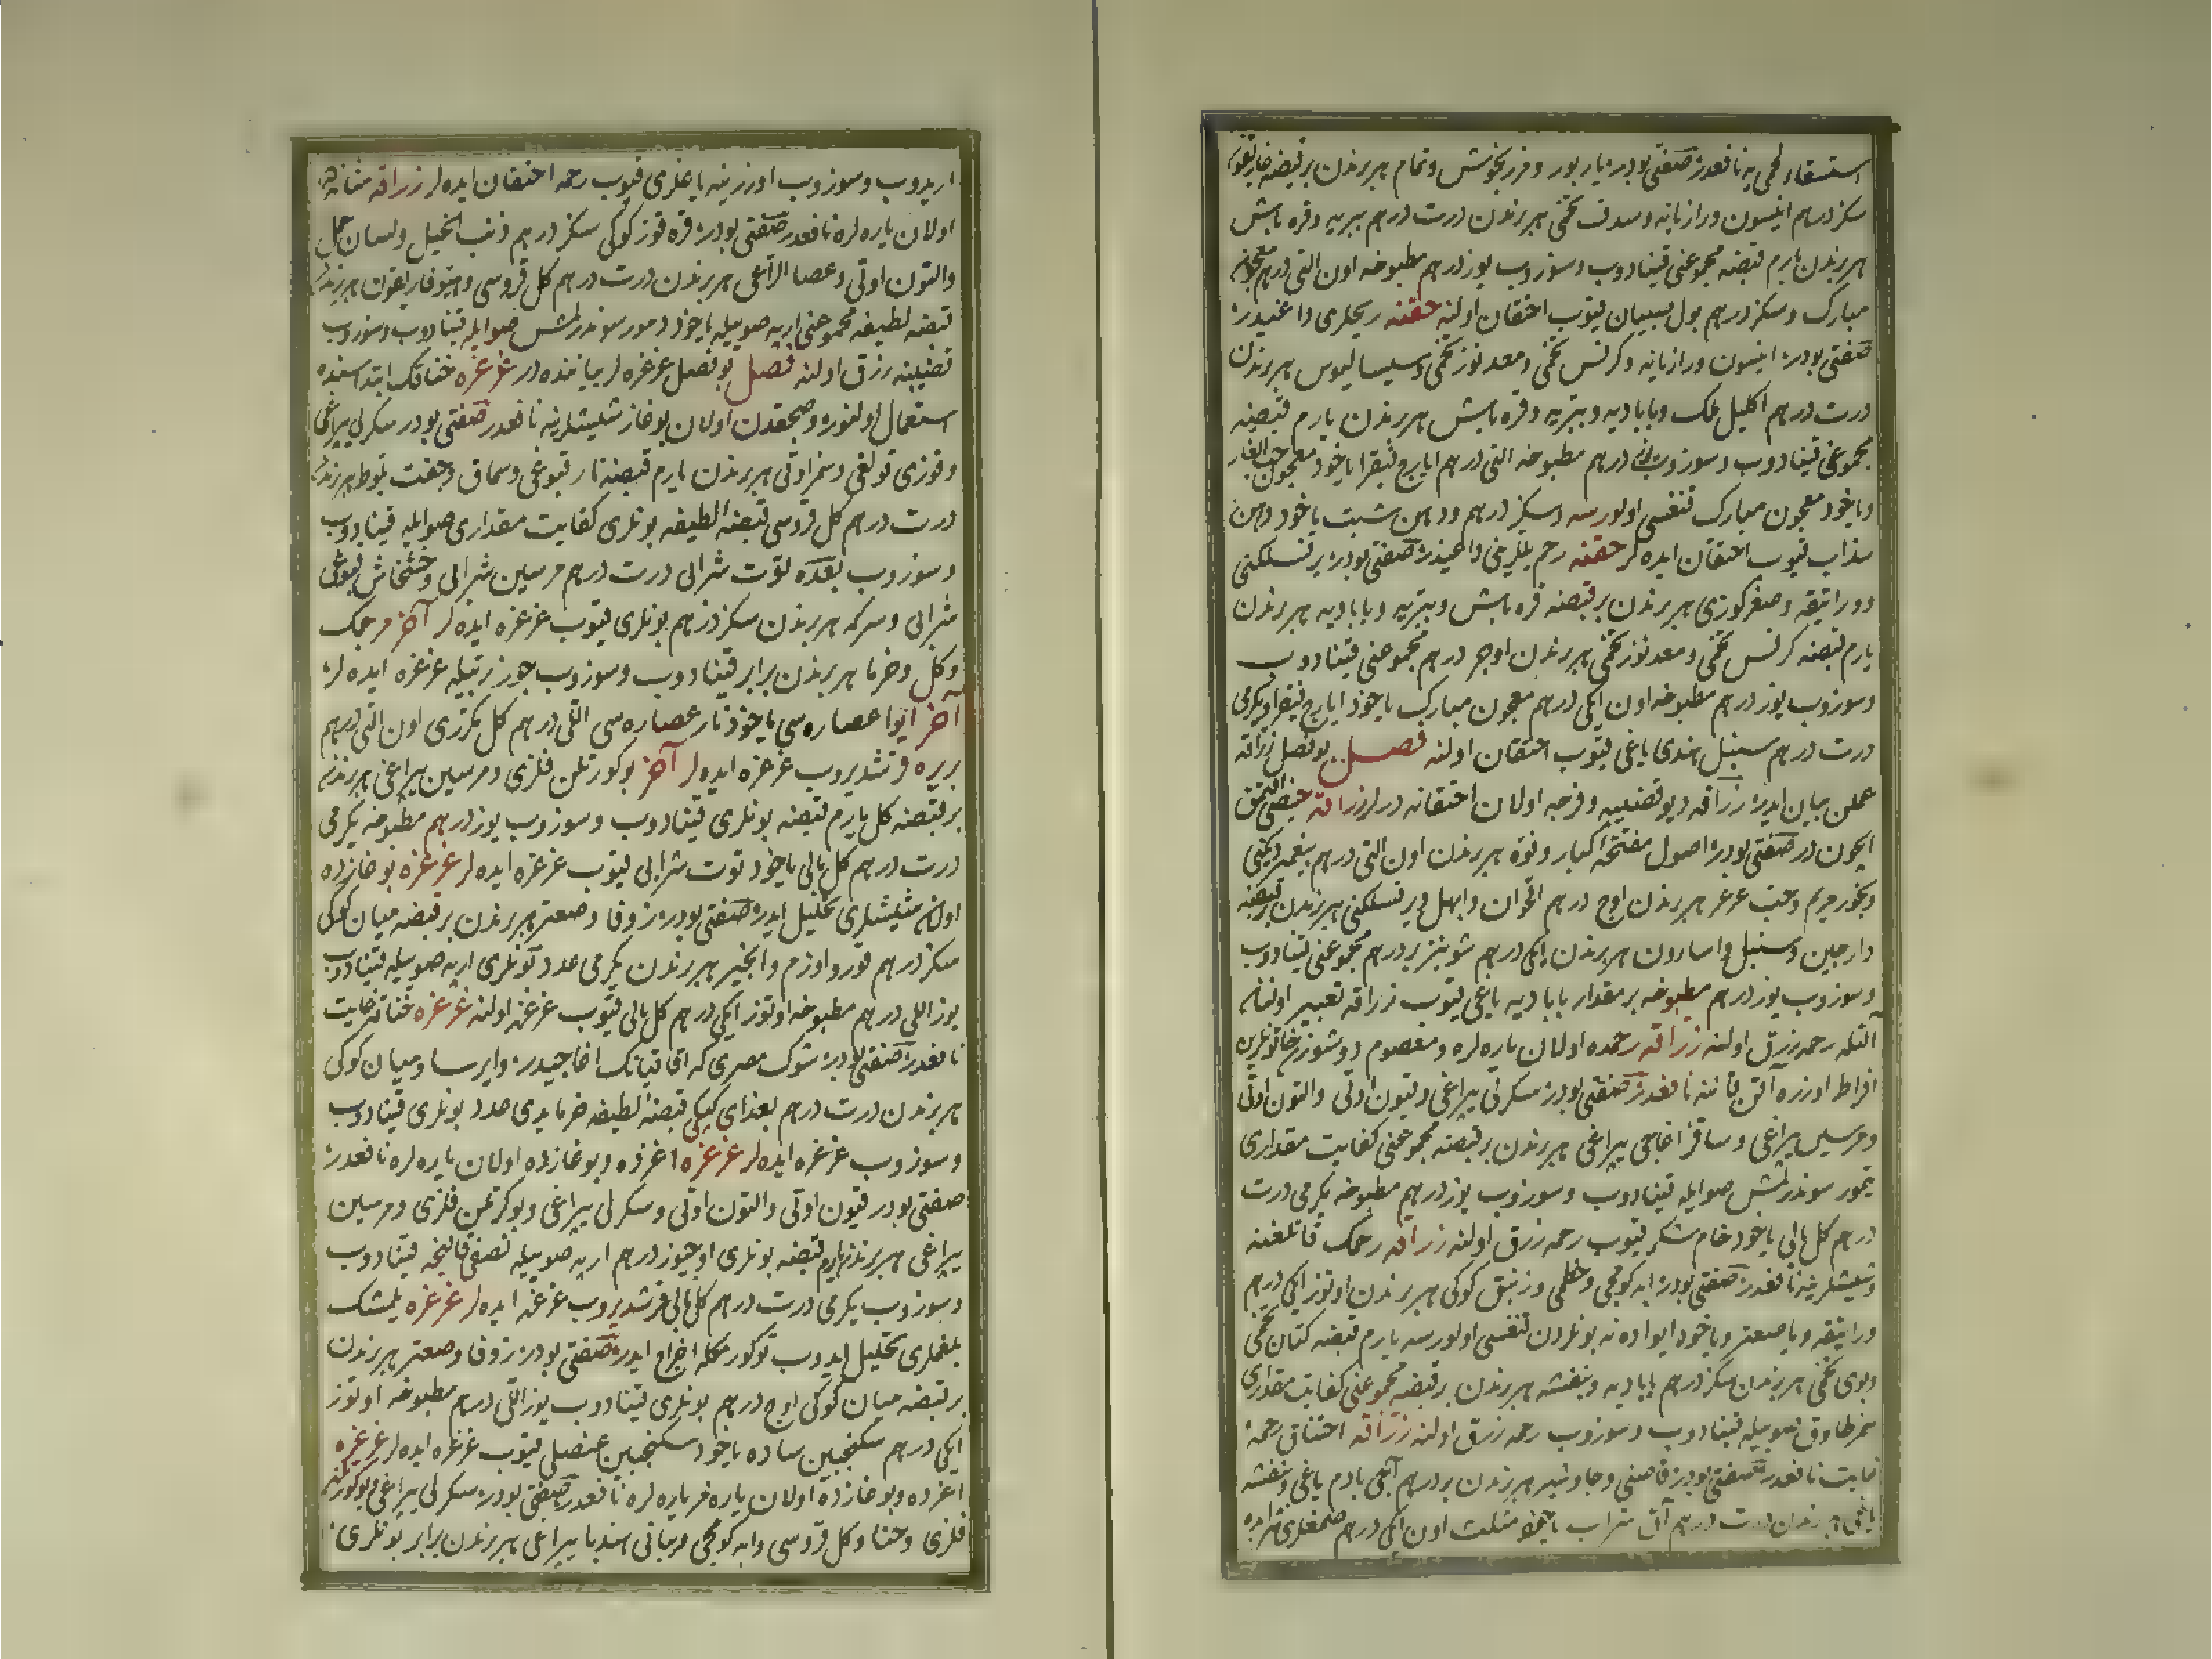 استسقاء لحمی یه نافعدر صفتی بودر یارپوز و مرزنجوش و نمام هر برندن بر قبضه غاریقون
سکز درهم انیسون و رازیانه و سدف تخمی هر برندن درت درهم ببریه و قره باش
هر برندن یارم قبضه مجموعنی قینادوب و سوزوب یوز درهم مطبوخه اون التی درهم معجون
مبارک و سکز درهم بول صبیان قیوب احتقان اولنه حقنه ریحلری داغیدر
صفتی بودر انیسون و رازیانه و کرفس تخمی و معدنوز تخمی و سیسالیوس هر برندن
درت درهم اکلیل ملک و بابادیه و ببریه و قره باش هر برندن یارم قبضه
مجموعنی قینادوب و سوزوب یوز درهم مطبوخه التی درهم ایارج فیقرا یاخود معجون حب الغار
ویاخود معجون مبارک قنغسی اولورسه و سکز درهم دهن شبت یاخود دهن
سذاب قیوب احتقان ایده لر حقنه رحم یللرینی داغیدر صفتی بودر بر نسلکنی
و وراتیقه و صغرکوزی هر برندن بر قبضه قره باش و ببریه و بابادیه هر برندن
یارم قبضه کرفس تخمی و معدنوز تخمی هر برندن اوچر درهم مجموعنی قینادوب
وسوزوب یوز درهم مطبوخه اون ایکی درهم معجون مبارک یاخود ایارج فیقرا و یکرمی
درت درهم سنبل هندی یاغی قیوب احتقان اولنه فصل بو فصل زراقه
عملن بیان ایدر زراقه دیو قضیبه و فرجه اولان احتقانه دیرلر زراقه حیضی اقتمق
ایچون در صفتی بودر اصول مفتحه کبار و فوه هر برندن اون التی درهم پیغمبر دیکنی
و بخور مریم و حب عرعر هر برندن اوچ درهم اقحوان و ابهل و بر نسلکنی هر برندن بر قبضه
دارچین و سنبل و اسارون هر برندن ایکی درهم شونیز بر درهم مجموعنی قینادوب
و سوزوب یوز درهم مطبوخه بر مقدار بابادیه یاغی قیوب زراقه تعبیر اولنان
آلتله رحمه زرق اولنه زراقه رحمده اولان یاره لره و معصوم دوشورن خاتونلرین
افراط اوزره آقن قانینه نافعدر صفتی بودر سکرلی یپراغی و قیون اوتی و التون اوتی
و مرسین یپراغی و ساقز اغاجی یپراغی هر برندن بر قبضه مجموعنی کفایت مقداری
تیمور سوندرلمش صوایله قینادوب و سوزوب یوز درهم مطبوخه یکرمی درت
درهم کل بالی یاخود خام شکر قیوب رحمه زرق اولنه زراقه رحمک قاتلغنه
و شیشلرینه نافعدر صفتی بودر ابه کومجی و خطمی و زنبق کوکی هر برندن اوتوز ایکی درهم
وراتیقه ویا صعتر ویاخود ایواده نه بونلردن قنغسی اولورسه یارم قبضه کتان تخمی
و بوی تخمی هر برندن سکز درهم بابادیه و بنفشه هر برندن بر قبضه مجموعنی کفایت مقداری
سمز طاوق صوییله قینادوب و سوزوب رحمه زرق اولنه زراقه اختناق رحمه
غایت نافعدر صفتی بودر قاصنی و جاوشیر هر برندن بر درهم آجی بادم یاغی و بنفشه
یاغی هر برندن درت درهم آق شراب یاخود مثلث اون ایکی درهم صمغلری شرابده
اریدوب و سوزوب اوزرینه یاغلری قیوب رحمه احتقان ایده لر زراقه مثانه ده
اولان یاره لره نافعدر صفتی بودر قره قوز کوکی سکز درهم ذنب الخیل و لسان حمل
والتون اوتی و عصا الراعی هر برندن درت درهم کل قروسی و هیوفاریقون هر برندن
قبضه لطیفه مجموعنی اربه صوییله یاخود دمور سوندرلمش صوایله قینادوب و سوزوب
قضیبنه زرق اولنه فصل بو فصل غرغره لر بیاننده در غرغره خناقک ابتداسنده
استعمال اولنور و صیجقدن اولان بوغاز شیشلرینه نافعدر صفتی بودر سکرلی یپراغی
و قوزی قولغی و سمز اوتی هر برندن یارم قبضه نار قبوغی و سماق و جفت بلوط هر برندن
درت درهم کل قروسی قبضه الطیفه بونلری کفایت مقداری صوایله قینادوب
و سوزوب بعده توت شرابی درت درهم مرسین شرابی و خشخاش قبوغی
شرابی و سرکه هر برندن سکز درهم بونلری قیوب غرغره ایده لر آخر مرجمک
و کل و خرما هر برندن برابر قینادوب و سوزوب جوز ربیله غرغره ایده لر
آخر ایوا عصاره سی یاخود نار عصاره سی اللی درهم کل مکرری اون التی درهم
بریره قرشدیروب غرغره ایده لر آخر بوکورتلن فلزی و مرسین یپراغی هر برندن
بر قبضه کل یارم قبضه بونلری قینادوب و سوزوب یوز درهم مطبوخه یکرمی
درت درهم کل بالی یاخود توت شرابی قیوب غرغره ایده لر غرغره بوغازده
اولان شیشلری تحلیل ایدر صفتی بودر زوفا و صعتر هر برندن بر قبضه میان کوکی
سکز درهم قورو اوزم و انجیر هر برندن یکرمی عدد بونلری اربه صوییله قینادوب
یوز اللی درهم مطبوخه اوتوز ایکی درهم کل بالی قیوب غرغره اولنه غرغره خناقه غایت
نافعدر صفتی بودر شوک مصری که اقاقیانک اغاجیدر و ایرسا و میان کوکی
هر برندن درت درهم بغدای کپکی قبضه الطیفه خرما یدی عدد بونلری قینادوب
و سوزوب غرغره ایده لر غرغره اغزده و بوغازده اولان یاره لره نافعدر
صفتی بودر قیون اوتی والتون اوتی و سکرلی یپراغی و بوکرتلن فلزی و مرسین
یپراغی هر برندن یارم قبضه بونلری اوچیوز درهم اربه صوییله نصفی قالنجه قینادوب
و سوزوب یکرمی درت درهم کل بالی قرشدیروب غرغره ایده لر غرغره یلمشک
بلغملری تحلیل ایدوب توکورمکله اخراج ایدر صفتی بودر زوفا و صعتر هر برندن
بر قبضه میان کوکی اوچ درهم بونلری قینادوب یوز اللی درهم مطبوخه اوتوز
ایکی درهم سکنجبین ساده یاخود سکنجبین عنصلی قیوب غرغره ایده لر غرغره
اغزده و بوغازده اولان یاره لره نافعدر صفتی بودر سکرلی یپراغی و بوکورتلن
فلزی و حنا و کل قروسی و ابه کومجی و یبانی هندبا یپراغی هر برندن برابر بونلری